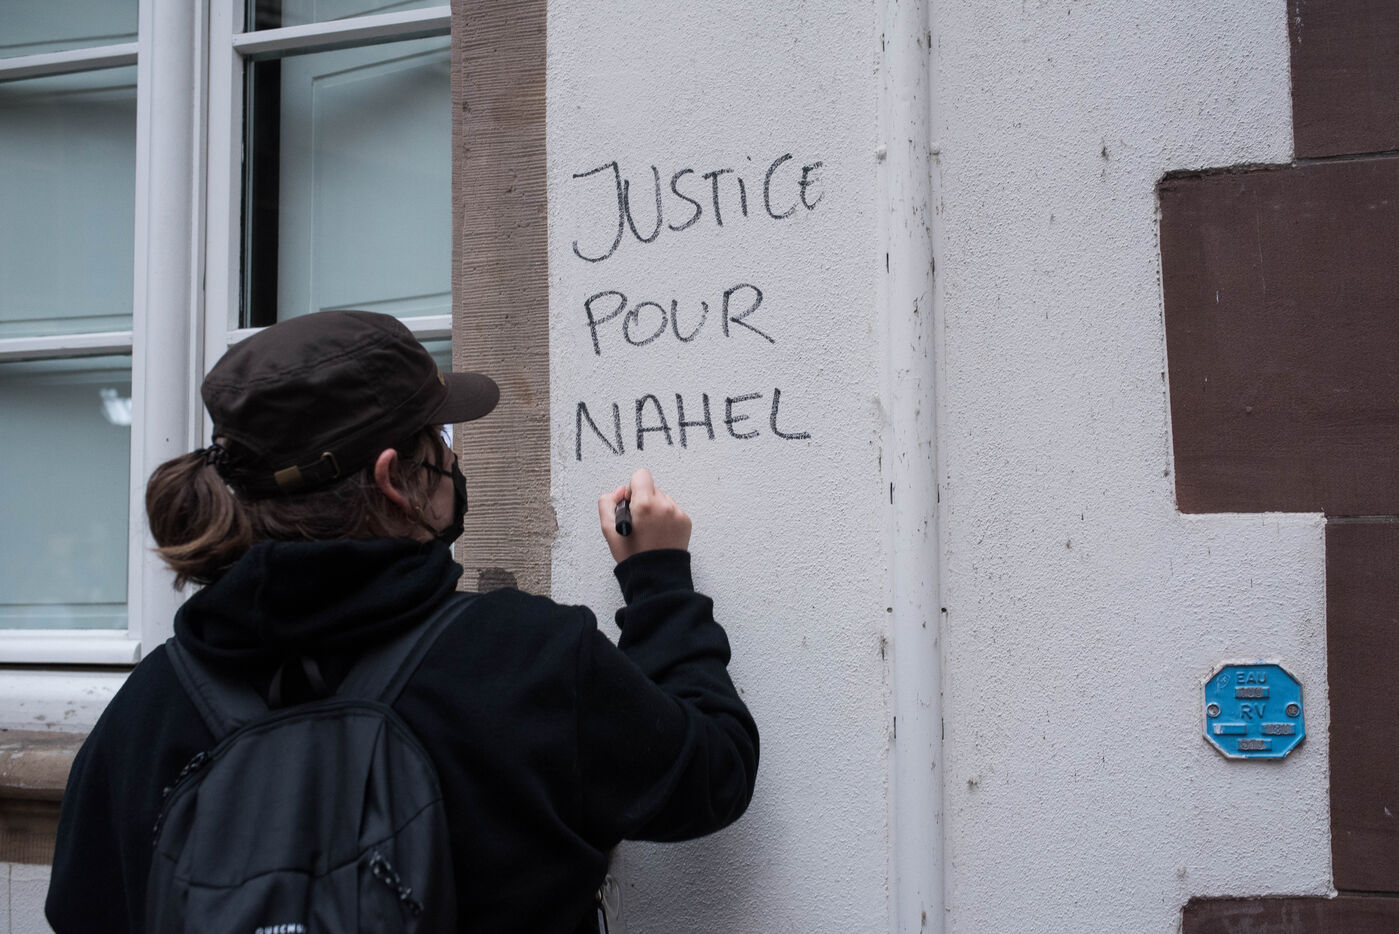 JUSTiCE
POUR
NAHEL
EAU
RV